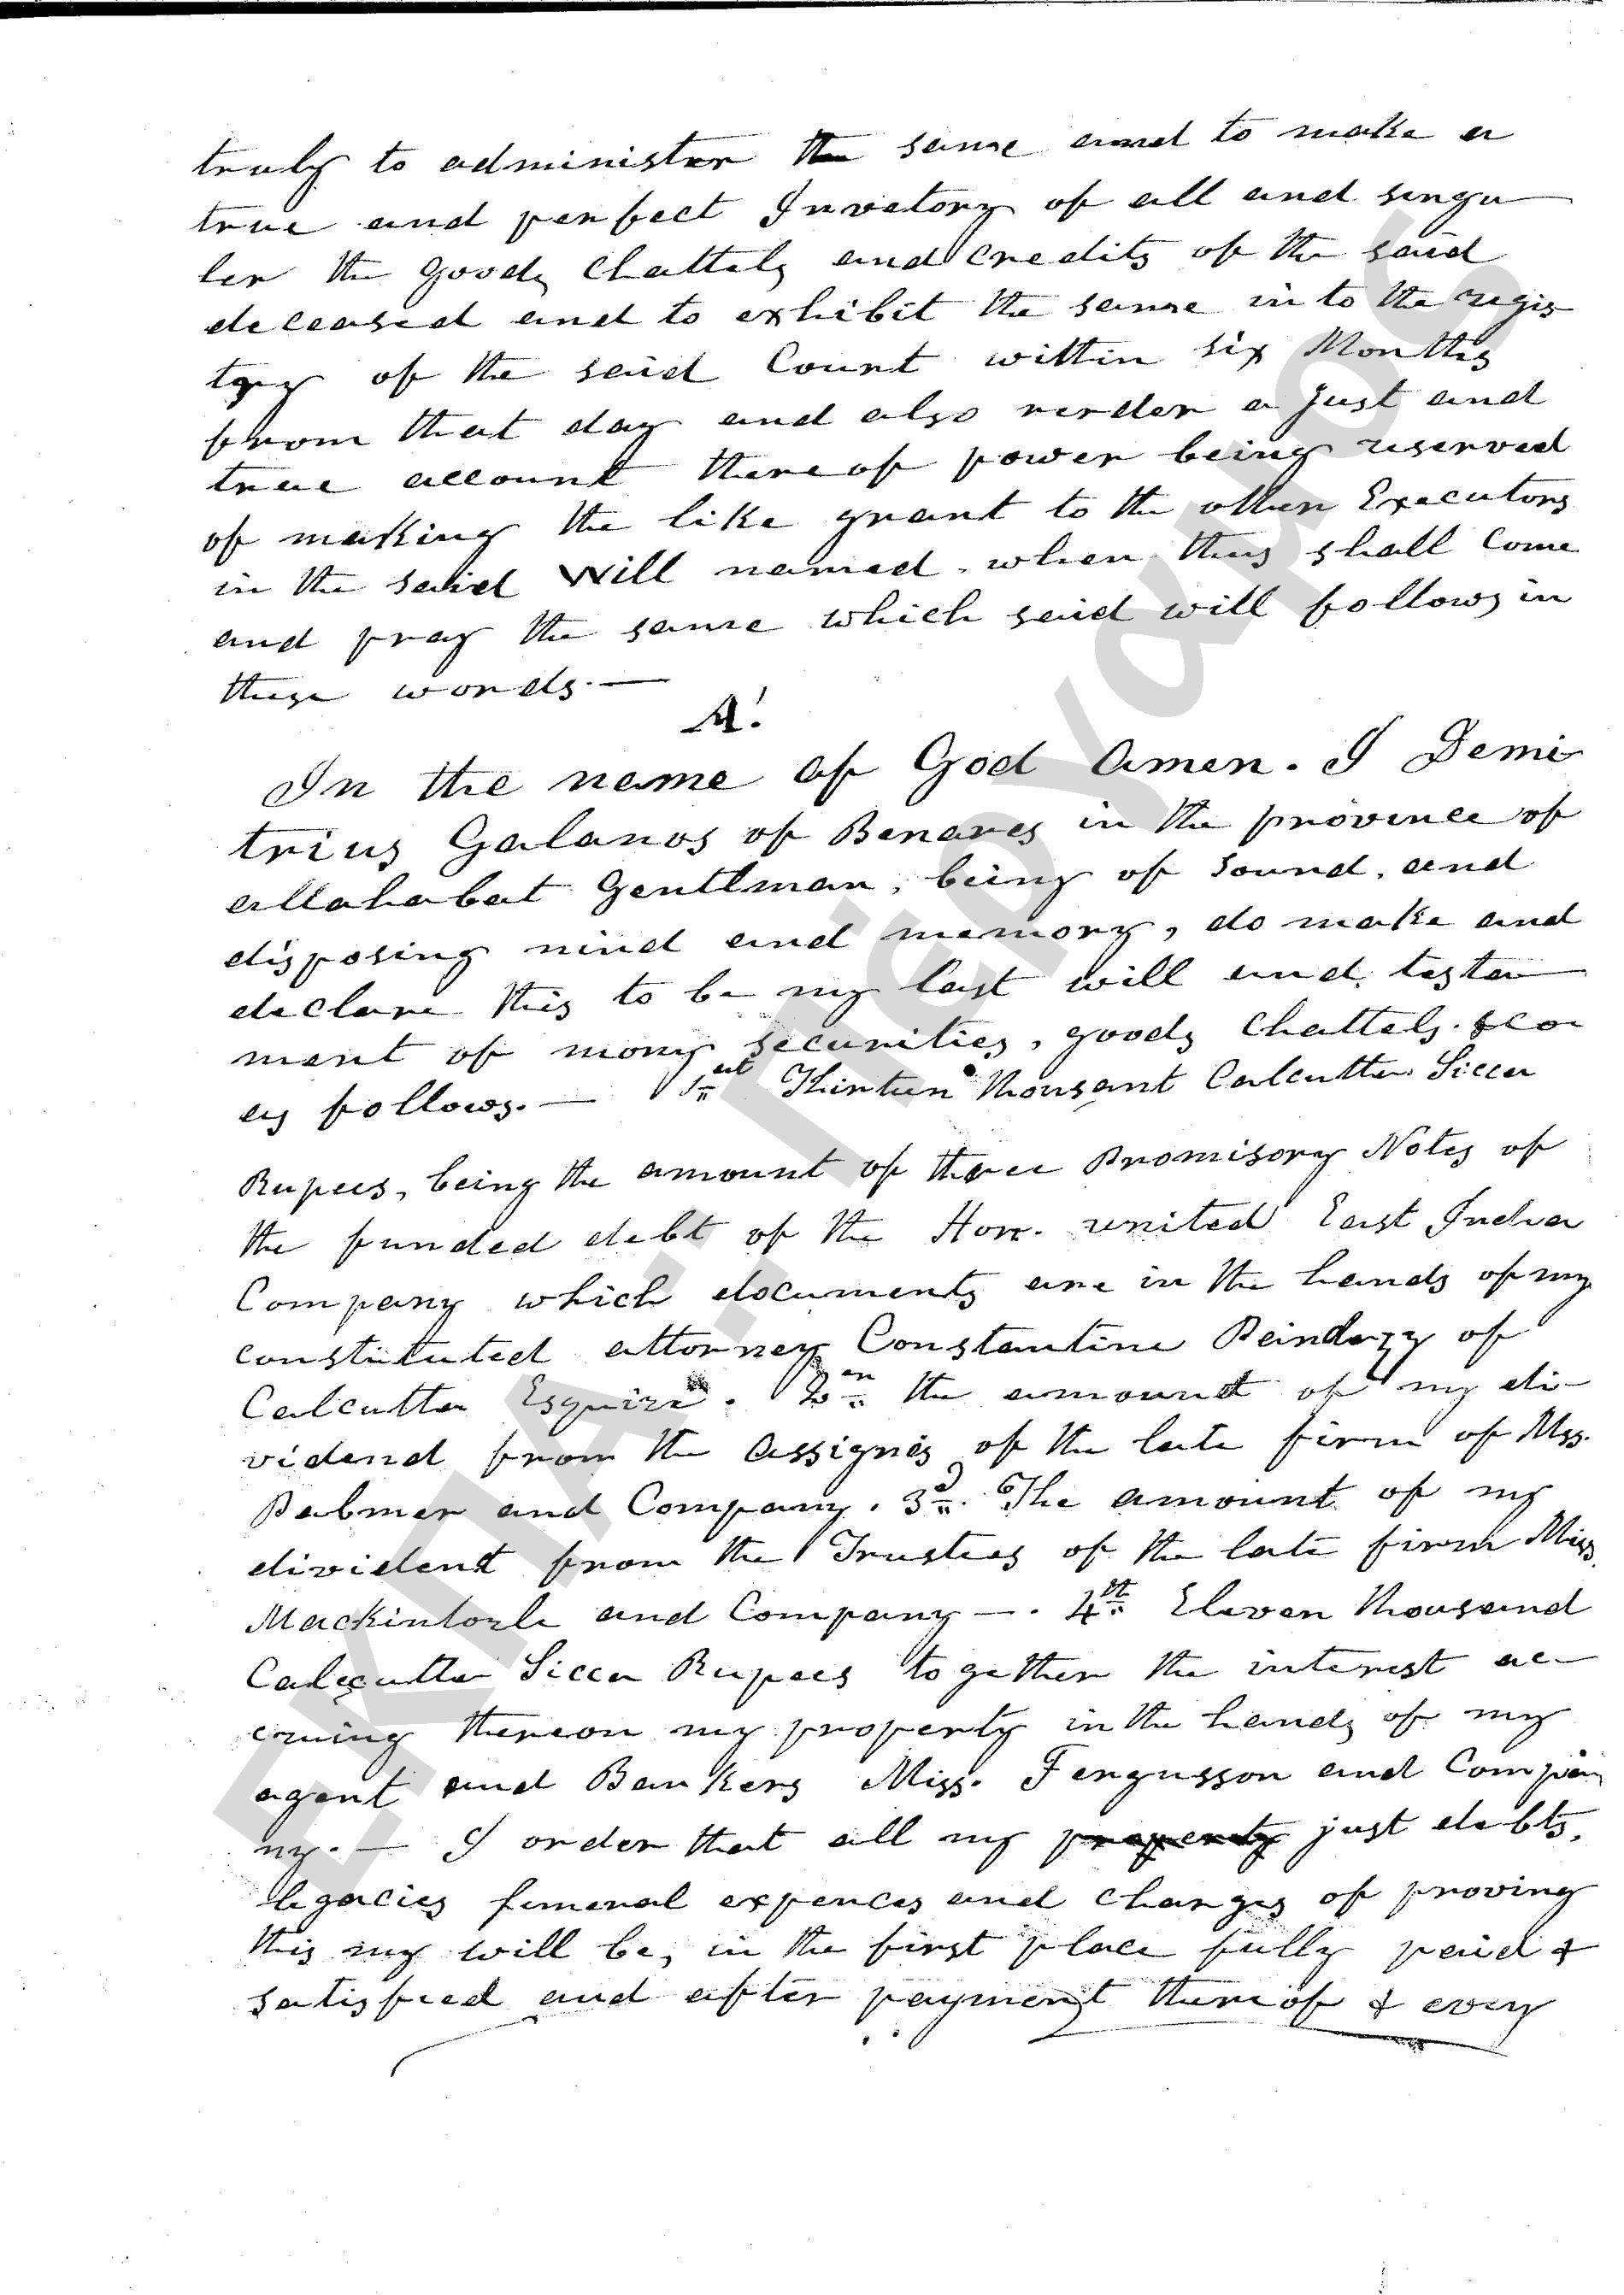 truly to administer the same and to make a
true and perfect Invetory of all and singu
ler the goods Chattels and credits of the said
deceased and to exhibit the same in to the regis
try of the said Court within six Months
from that day and also render a just and
true account thereof power being reserved
of making the like grant to the other Executors
in the said Will named. when they shall Come
and pray the same which said will follows in
these words.—
A!
In the name of God Amen. I Demi
trius Galanos of Benares in the province of
allahabat Gentlman, being of sound, and
disposing mind and memory, do make and
declare this to be my last will and testa
ment of mony securities, goods Chattels. &co
as follows.— 1st Thirtun Thousant Calcutta Sicca
Rupees, being the amount of three Promisory Notes of
the funded debt of the Hon. united East India
Company which documents are in the hands of my
constituted attorney Constantine Pandazy of
Calcutta Esquire. 2n the amount of my di-
vidend from the Assignes of the late firm of Mss.
Palmer and Company. 3d. The amount of my
divident from the Trustees of the late firm Miss.
Mackintosh and Company —. 4th Eleven Thousand
Calcutta Sicca Rupees together the interest ac-
cruing thereon my property in the hands of my
agent and Bankers Miss. Fergusson and Compa
ny.— I order that all my property just debts,
legacies funeral expences and charges of proving
this my will be, in the first place fully paid &
satisfied and after payment thereof & every